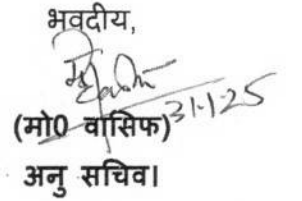 भवदीय,
31-1-25
(मो0 वासिफ)
अनु सचिव।